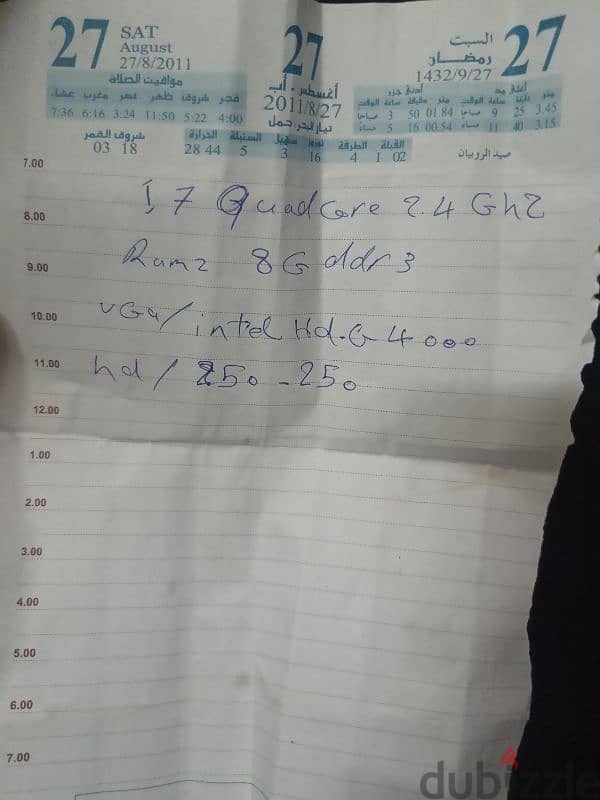 27
SAT
August
27/8/2011
27
أغسطس - آب
2011/8/27
السبت
رمضان
1432/9/27
27
مواقيت الصلاة
فجر شروق ظهر عصر مغرب عشاء
4:00 5:22 11:50 3:24 6:16 7:36
أعلى مد أدنى جزر
متر دقيقة ساعة الوقت متر دقيقة ساعة الوقت
3.45 25 9 صباحا 01.84 50 3 صباحا
3.15 40 11 مساء 00.54 16 5 مساء
شروق القمر
03 18
الحرارة
28 44
السنبلة
5
سهيل
3
نوروز
16
الطرفة
4
القبلة
1 02
صيد الروبيان
7.00
I 7 Quadcore 2.4 GhZ
8.00
Ramz 8G ddr3
9.00
VGa/intel Hd.G 4000
10.00
hd/ 250-250
11.00
12.00
1.00
2.00
3.00
4.00
5.00
6.00
7.00
dubizzle